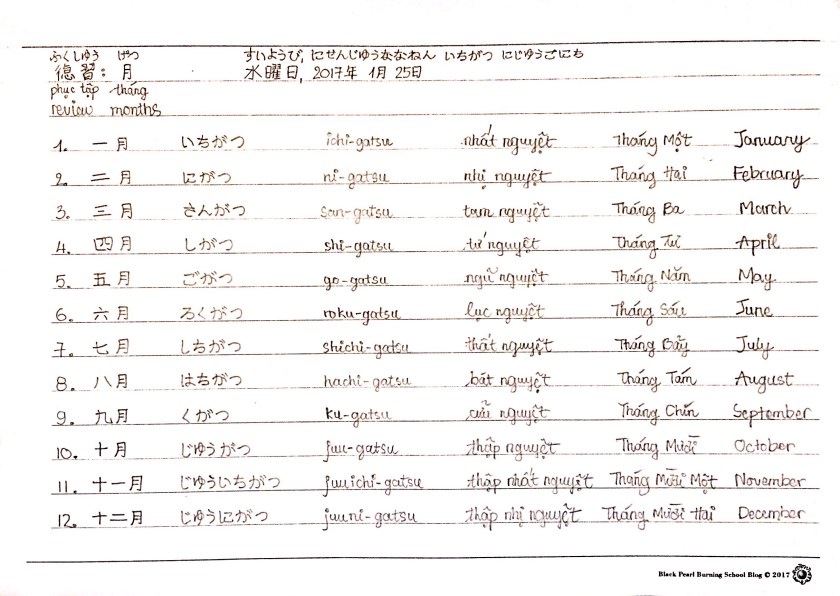 ふくしゅう げつ すいようび, にせんじゅうななねん いちがつ にじゅうごにち
復習: 月 水曜日, 2017年 1月 25日
phục tập tháng
review months
1. 一月 いちがつ ichi-gatsu nhất nguyệt Tháng Một January
2. 二月 にがつ ni-gatsu nhị nguyệt Tháng Hai February
3. 三月 さんがつ san-gatsu tam nguyệt Tháng Ba March
4. 四月 しがつ shi-gatsu tứ nguyệt Tháng Tư April
5. 五月 ごがつ go-gatsu ngũ nguyệt Tháng Năm May
6. 六月 ろくがつ roku-gatsu lục nguyệt Tháng Sáu June
7. 七月 しちがつ shichi-gatsu thất nguyệt Tháng Bảy July
8. 八月 はちがつ hachi-gatsu bát nguyệt Tháng Tám August
9. 九月 くがつ ku-gatsu cửu nguyệt Tháng Chín September
10. 十月 じゅうがつ juu-gatsu thập nguyệt Tháng Mười October
11. 十一月 じゅういちがつ juuichi-gatsu thập nhất nguyệt Tháng Mười Một November
12. 十二月 じゅうにがつ juuni-gatsu thập nhị nguyệt Tháng Mười Hai December
Black Pearl Burning School Blog © 2017